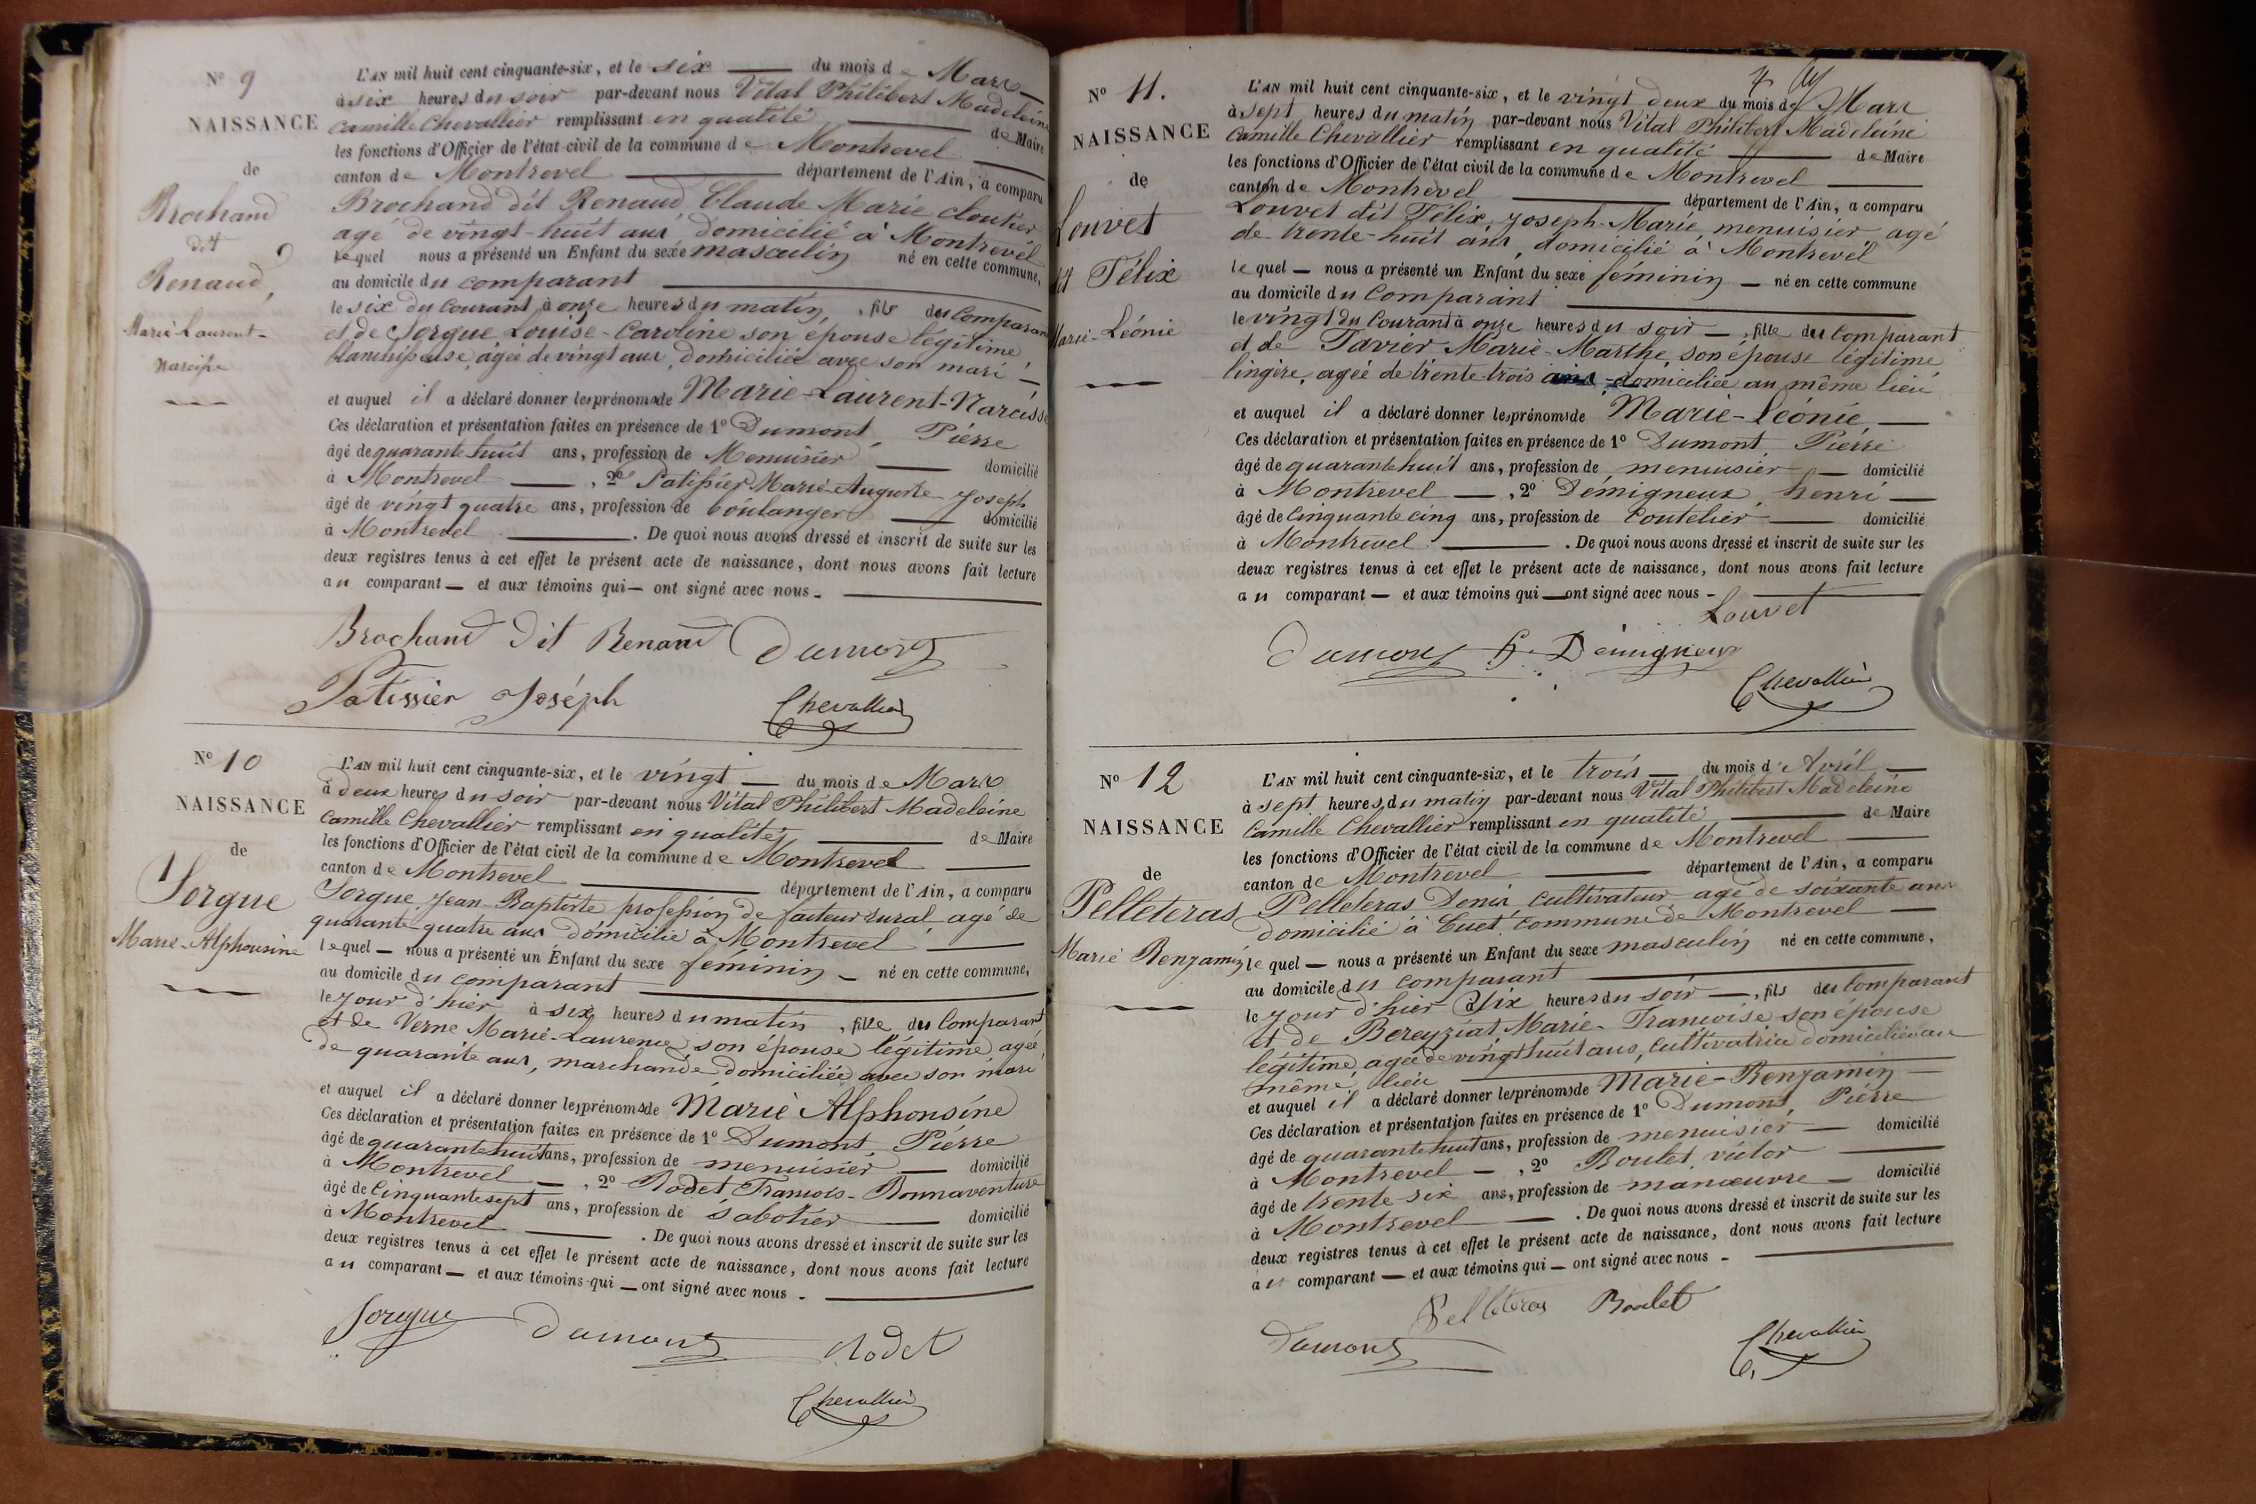 N° 9
NAISSANCE
de
Brochand
dit
Renaud,
Marie-Laurent-
Narcisse
L'AN mil huit cent cinquante-six, et le six du mois de Mars
à six heures du soir par-devant nous Vital Philibert Madeleine
Camille Chevallier remplissant en qualité de Maire
les fonctions d'Officier de l'état civil de la commune de Montrevel
canton de Montrevel département de l'Ain, a comparu
Brochand dit Renaud Claude Marie cloutier
agé de vingt-huit ans domicilié à Montrevel
lequel nous a présenté un Enfant du sexe masculin né en cette commune,
au domicile du comparant
le six du courant à onze heures du matin, fils du Comparant
et de Sorgue Louise-Caroline son épouse légitime,
blanchisseuse, agée de vingt ans, domiciliée avec son mari
et auquel il a déclaré donner les prénoms de Marie-Laurent-Narcisse
Ces déclaration et présentation faites en présence de 1° Dumont, Pierre
âgé de quarante huit ans, profession de Menuisier domicilié
à Montrevel , 2° Patissier Marie-Auguste Joseph
âgé de vingt quatre ans, profession de boulanger domicilié
à Montrevel . De quoi nous avons dressé et inscrit de suite sur les
deux registres tenus à cet effet le présent acte de naissance, dont nous avons fait lecture
au comparant — et aux témoins qui — ont signé avec nous -
Brochand dit Renaud Dumont
Patissier Joséph Chevallier
N° 10
NAISSANCE
de
Sorgue
Marie-Alphonsine
L'AN mil huit cent cinquante-six, et le vingt — du mois de Mars
à deux heures du soir par-devant nous Vital Philibert Madeleine
Camille Chevallier remplissant en qualité de Maire
les fonctions d'Officier de l'état civil de la commune de Montrevel
canton de Montrevel département de l'Ain, a comparu
Sorgue Jean-Baptiste profession de facteur rural, agé de
quarante-quatre ans domicilié à Montrevel
lequel — nous a présenté un Enfant du sexe féminin — né en cette commune,
au domicile du comparant
le jour d'hier à six heures du matin , fille du Comparant
et de Verne Marie-Laurence son épouse légitime, agée
de quarante ans, marchande domiciliée avec son mari
et auquel il a déclaré donner les prénoms de Marie Alphonsine
Ces déclaration et présentation faites en présence de 1° Dumont, Pierre
âgé de quarante huit ans, profession de menuisier — domicilié
à Montrevel — , 2° Rodet François-Bonnaventure
âgé de Cinquante sept ans, profession de Sabotier — domicilié
à Montrevel . De quoi nous avons dressé et inscrit de suite sur les
deux registres tenus à cet effet le présent acte de naissance, dont nous avons fait lecture
au comparant — et aux témoins qui — ont signé avec nous -
Sorgue Dumont Rodet
Chevallier
N° 11.
NAISSANCE
de
Louvet
dit Félix
Marie-Léonie
L'AN mil huit cent cinquante-six, et le vingt deux du mois de Mars
à sept heures du matin par-devant nous Vital Philibert Madeleine
Camille Chevallier remplissant en qualité de Maire
les fonctions d'Officier de l'état civil de la commune de Montrevel
canton de Montrevel département de l'Ain, a comparu
Louvet dit Félix, Joseph-Marie menuisier agé
de trente-huit ans, domicilié à Montrevel
lequel — nous a présenté un Enfant du sexe féminin — né en cette commune
au domicile du Comparant
le vingt du Courant à onze heures du soir — , fille du Comparant
et de Favier Marie-Marthe, son épouse légitime
lingère, agée de trente-trois ans domiciliée au même lieu
et auquel il a déclaré donner les prénoms de Marie-Léonie
Ces déclaration et présentation faites en présence de 1° Dumont, Pierre
âgé de quarante huit ans, profession de menuisier — domicilié
à Montrevel — , 2° Démigneux, henri —
âgé de Cinquante cinq ans, profession de Coutelier — domicilié
à Montrevel . De quoi nous avons dressé et inscrit de suite sur les
deux registres tenus à cet effet le présent acte de naissance, dont nous avons fait lecture
au comparant — et aux témoins qui — ont signé avec nous -
Louvet
Dumont h. Démigneux
Chevallier
N° 12
NAISSANCE
de
Pelleteras
Marie Benjamin
L'AN mil huit cent cinquante-six, et le trois — du mois d'Avril —
à sept heures du matin par-devant nous Vital Philibert Madeleine
Camille Chevallier remplissant en qualité de Maire
les fonctions d'Officier de l'état civil de la commune de Montrevel
canton de Montrevel département de l'Ain, a comparu
Pelleteras Denis cultivateur agé de soixante ans
domicilié à Cuet, commune de Montrevel —
lequel — nous a présenté un Enfant du sexe masculin né en cette commune,
au domicile du comparant
le jour d'hier à six heures du soir — , fils du Comparant
et de Bereyziat, Marie-Françoise son épouse
légitime, agée de vingt huit ans, Cultivatrice domiciliée au
même lieu
et auquel il a déclaré donner les prénoms de Marie-Benjamin —
Ces déclaration et présentation faites en présence de 1° Dumont, Pierre
âgé de quarante huit ans, profession de menuisier — domicilié
à Montrevel — , 2° Boulet, victor
âgé de trente-six ans, profession de manœuvre — domicilié
à Montrevel — . De quoi nous avons dressé et inscrit de suite sur les
deux registres tenus à cet effet le présent acte de naissance, dont nous avons fait lecture
au comparant — et aux témoins qui — ont signé avec nous -
Pelleteras Boulet
Dumont Chevallier